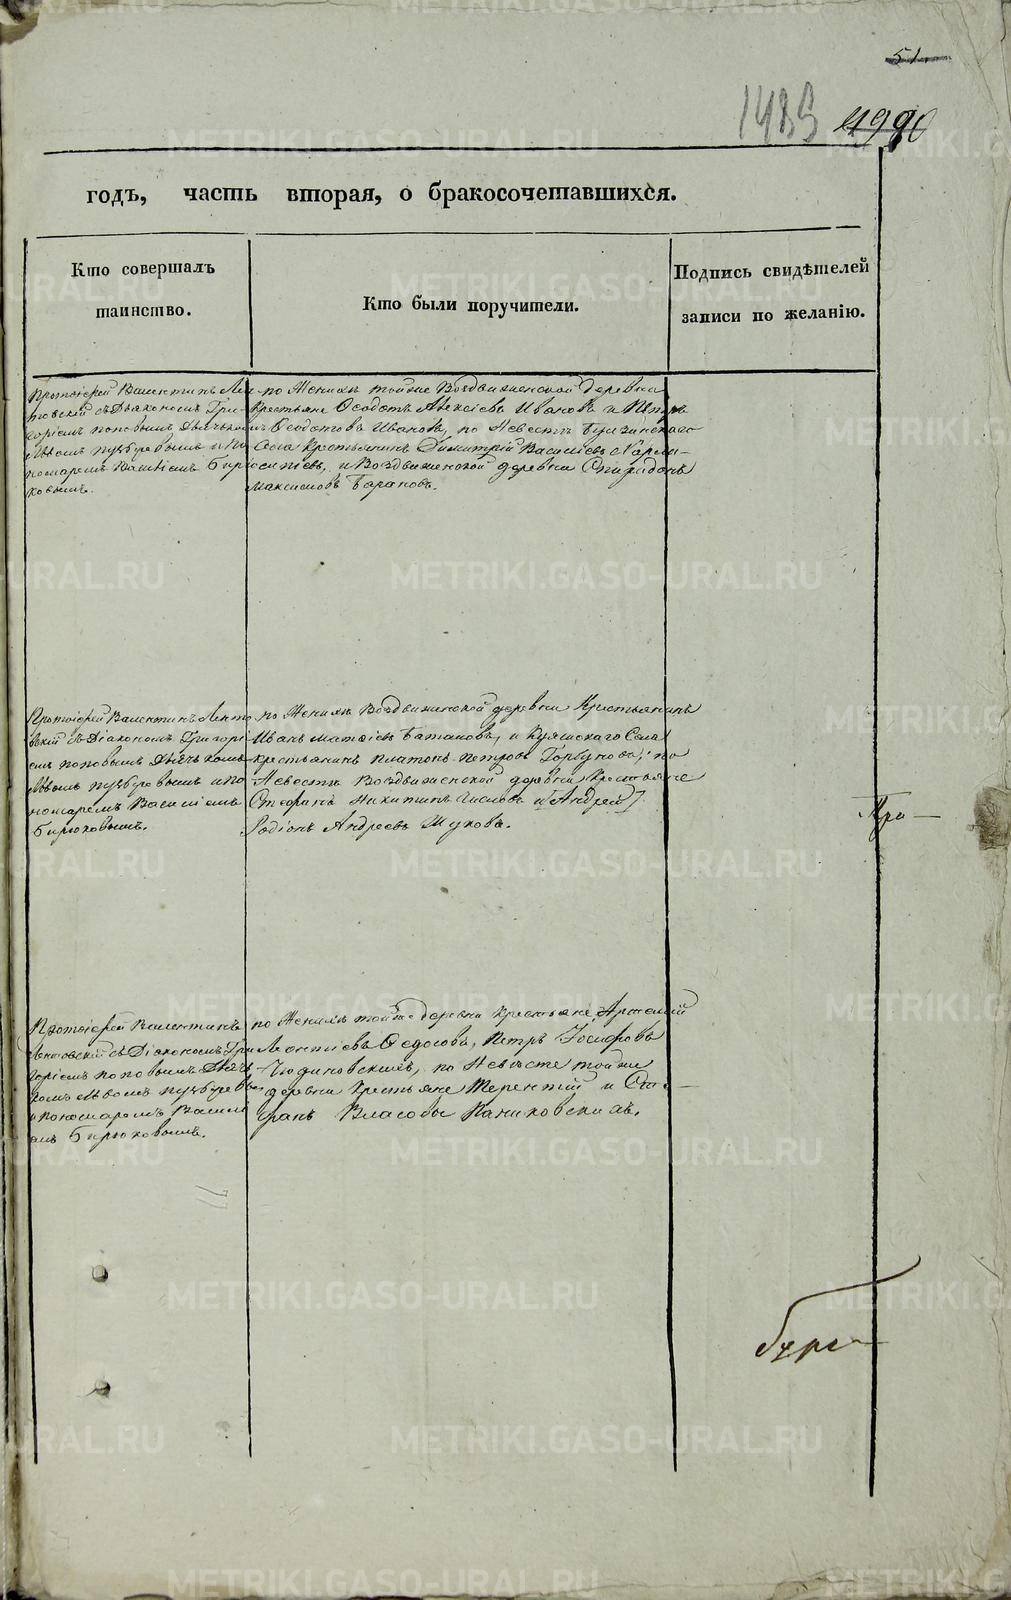 51
1489 1990
годъ, часть вторая, о бракосочетавшихся.
Кто совершалъ
таинство.
Кто были поручители.
Подпись свидѣтелей
записи по желанію.
Протоіерей Валентинъ Лек-
товскій съ Діакономъ Гри-
горіемъ Поповымъ Дьячькомъ
и По
номаремъ Василіемъ Бирю
ковымъ.
по Женихѣ тойже Воздвиженской деревни
Крестьяне Ѳедотъ Алексѣевъ Ивановъ и Петръ
Ѳедотовъ Ивановъ, по Невестѣ
Села Крестьянинъ Димитрій Василіевъ
и Воздвиженской деревни Спиридонъ
Максимовъ Барановъ.
Протоіерей Валентинъ Лекто
вскій съ Діакономъ Григорі
емъ Поповымъ Дьячкомъ
и По
номаремъ Василіемъ
Бирюковымъ.
по Женихѣ Воздвиженской деревни Крестьянинъ
Иванъ Матвіевъ Батановъ, и Куяшскаго Села
крестьянинъ Платонъ Петровъ Горбуновъ; по
Невестѣ Воздвиженской деревни Крестьяне
Стефанъ Никитинъ и [Андрей]
Родіонъ Андреевъ Жуковъ.
Про
Протоіерей Валентинъ
Лектовскій съ Діакономъ Гри
горіемъ Поповымъ Дьяч
комъ
и Пономаремъ Василі
емъ Бирюковымъ.
по Женихѣ тойже деревни крестьяне, Артемій
Леонтіевъ Ѳедосовъ, Петръ Іосифовъ
по Невесте тойже
деревни Крестьяне Терентій и Сте-
фанъ Власовы